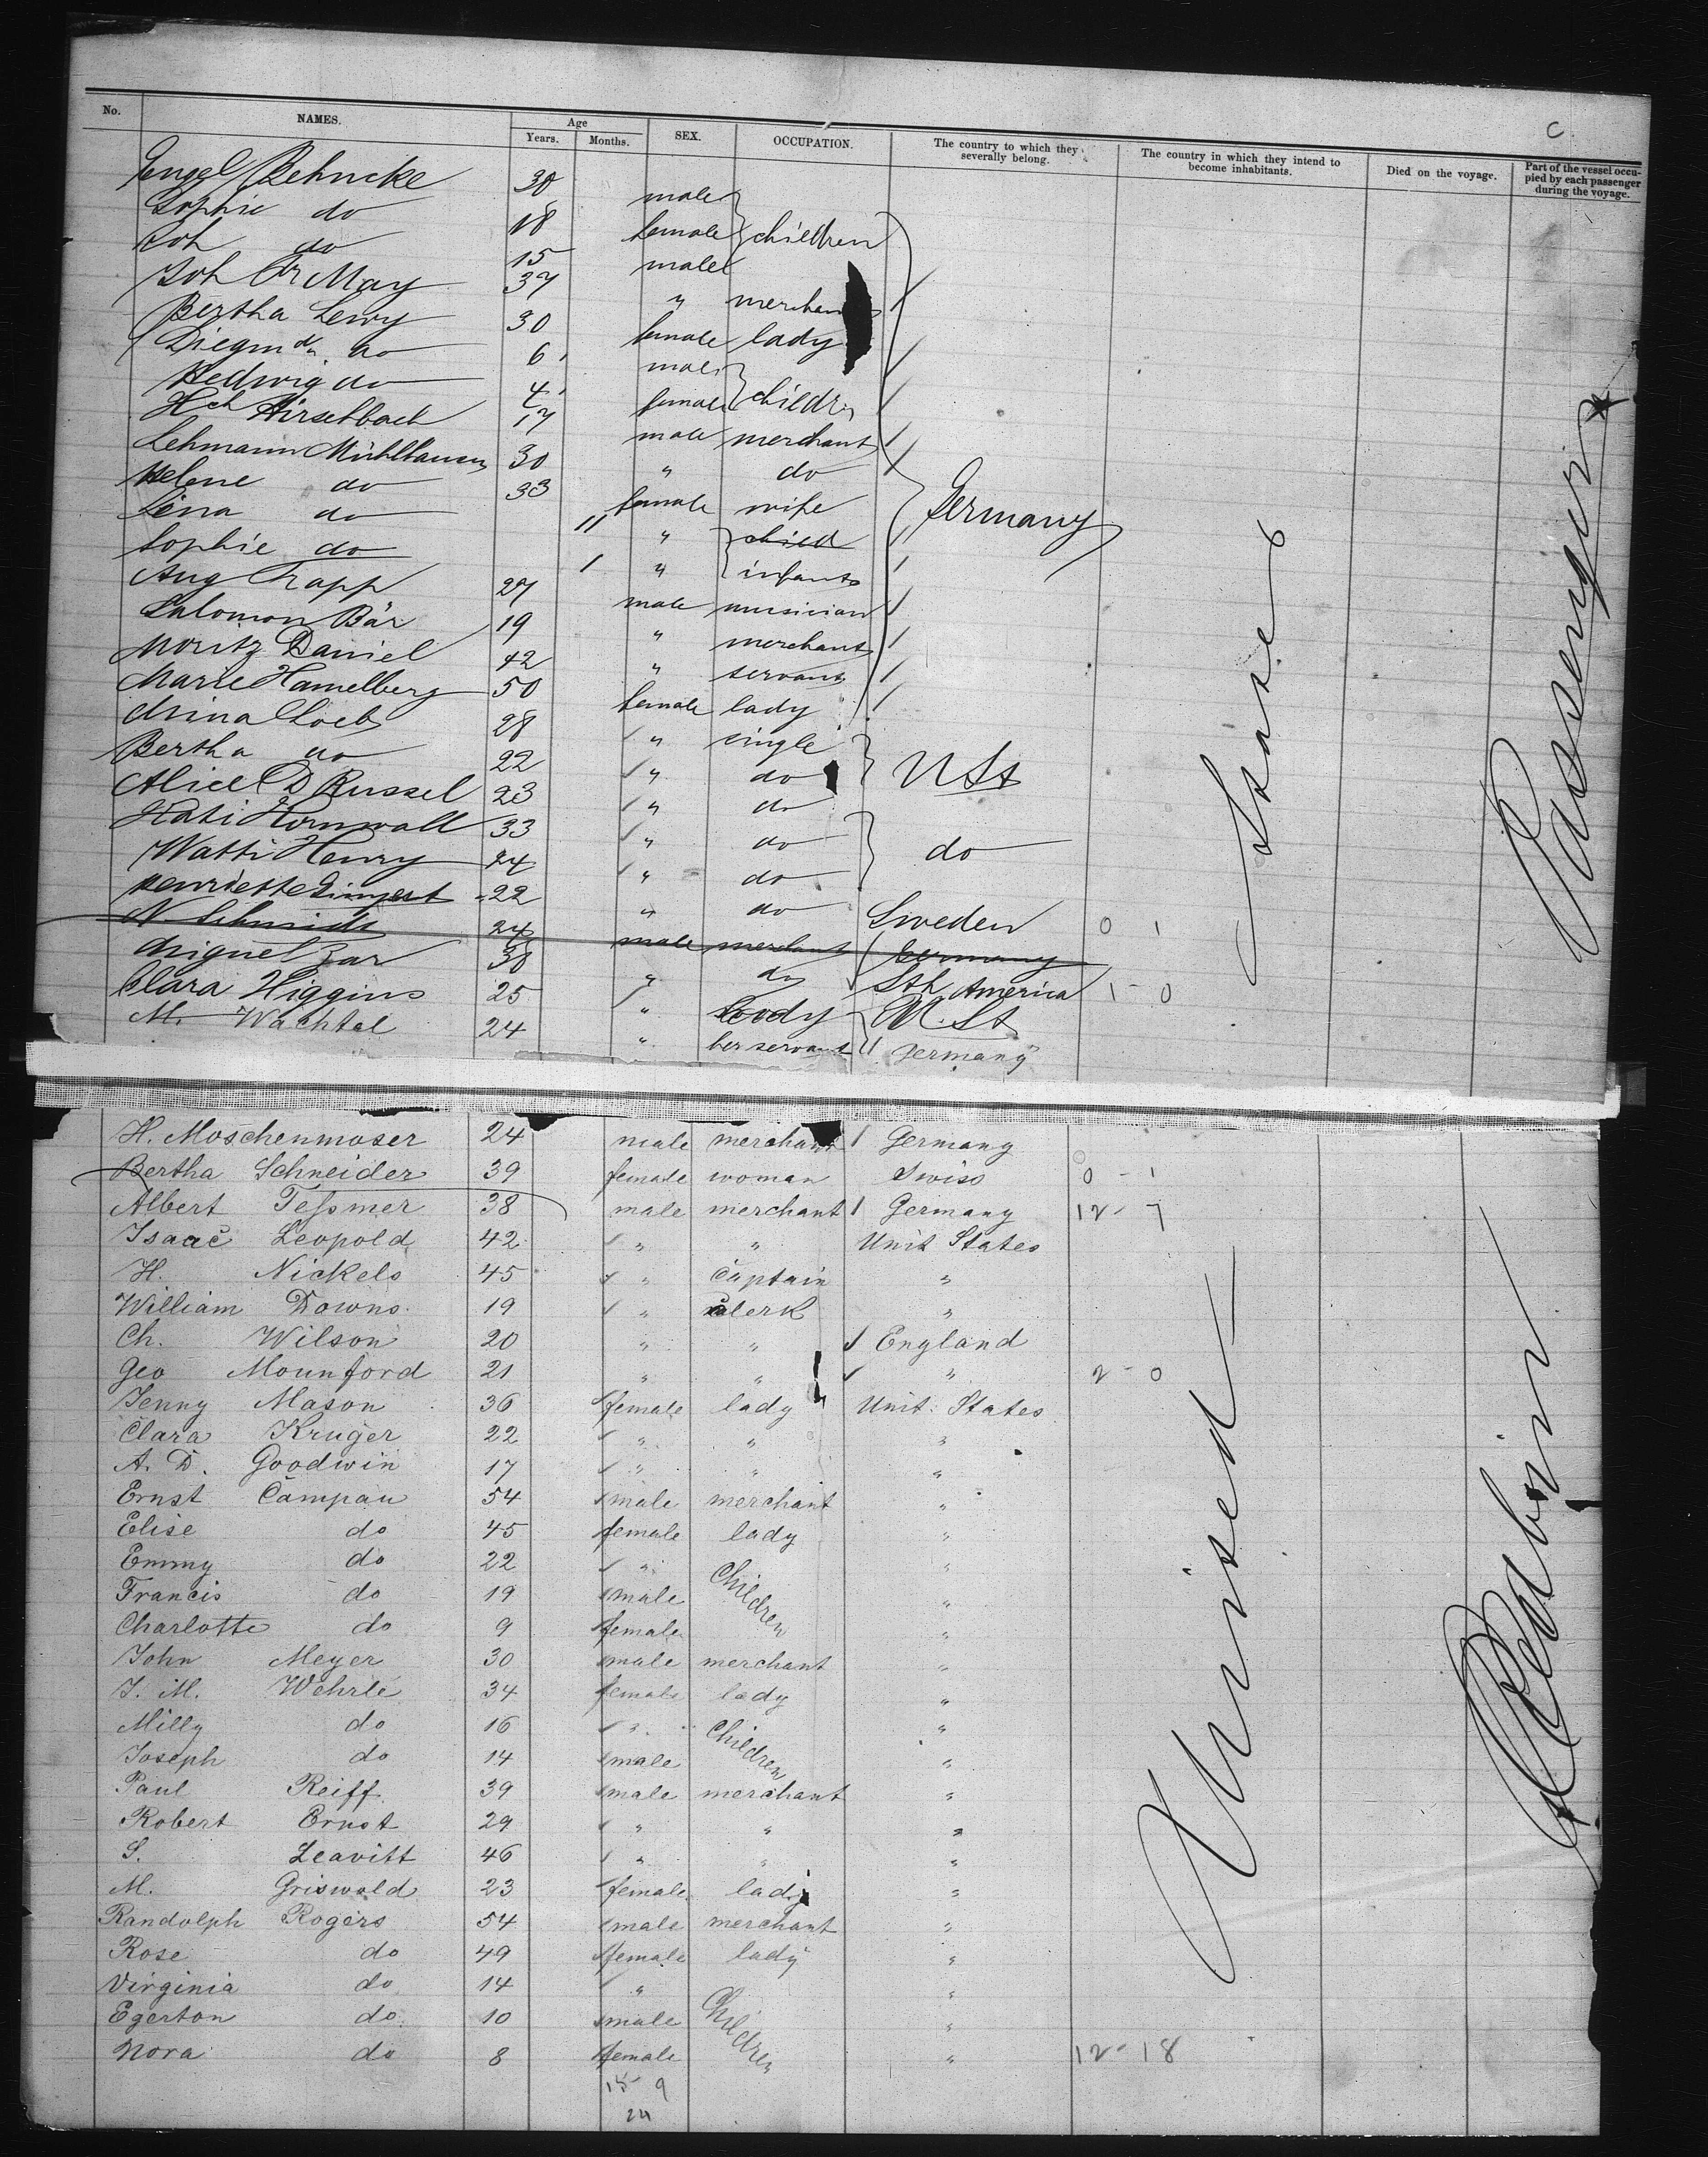 C
No. NAMES. Age Years. Months. SEX. OCCUPATION. The country to which they severally belong. The country in which they intend to become inhabitants. Died on the voyage. Part of the vessel occupied by each passenger during the voyage.
Engel Behncke 30 male
Sophie do 18 female children
Joh do 15 male
Joh Or May 37 " merchant
Bertha Levy 30 female lady
do 6 male
Hedwig do 4 female children
Hch Hirschbach 17 male merchant
Lehmann Mühlhausen 30 " do
Helene do 33 female wife Germany
Lina do 11 " child
Sophie do 1 " infants
Aug Trapp 27 male musician
Salomon Bär 19 " merchant
Moritz Daniel 42 " servant
Marie Hamelberg 50 female lady
Mina Loeb 28 " single
Bertha do 22 " do U St
Alice D Russel 23 " do
Kati Kornwall 33 " do do
Watti Henry 24 " do
Henriette 22 " do Sweden 0 1
N Schmidt 24 male merchant Germany
Miguel Zar 30 " do Sth America 1 - 0
Clara Higgins 25 " Lady U. St
M. Wachtel 24 " her servant Germany
Passenger
H. Moschenmoser 24 male merchant Germany
Bertha Schneider 39 female woman Swiss 0 - 1
Albert Tessmer 38 male merchant Germany 12 - 7
Isaac Leopold 42 " " Unit States
H. Nickels 45 " Captain "
William Downs 19 " clerk "
Ch. Wilson 20 " " England
Geo Mounford 21 " " " 2 - 0
Jenny Mason 36 female lady Unit. States
Clara Kruger 22 " " "
A. D. Goodwin 17 " " "
Ernst Campau 54 male merchant "
Elise do 45 female lady "
Emmy do 22 " Children "
Francis do 19 male "
Charlotte do 9 female "
John Meyer 30 male merchant "
J. M. Wehrle 34 female lady "
Milly do 16 " Children "
Joseph do 14 male "
Paul Reiff 39 male merchant "
Robert Ernst 29 " " "
S. Leavitt 46 " " "
M. Griswold 23 female lady "
Randolph Rogers 54 male merchant "
Rose do 49 female lady "
Virginia do 14 " "
Egerton do 10 male Children "
Nora do 8 female " 12 - 18
15 9
24
Cabin